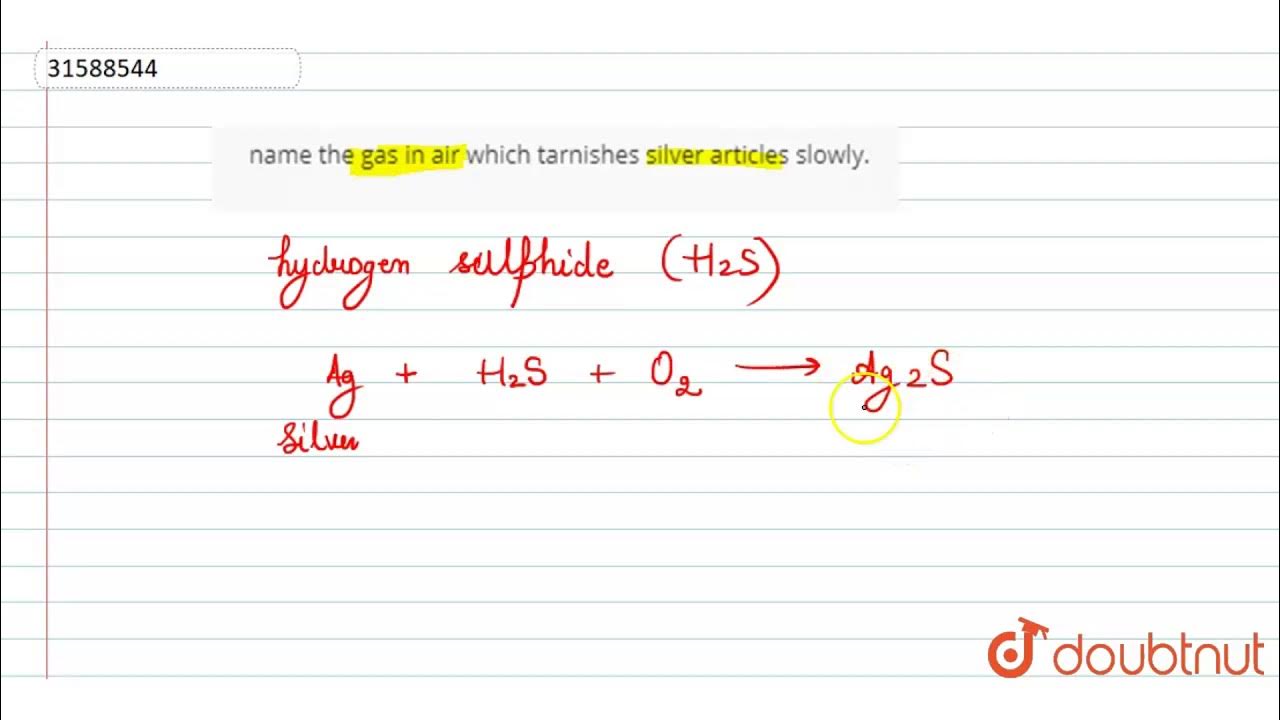 31588544
name the gas in air which tarnishes silver articles slowly.
hydrogen sulphide (H2S)
Ag + H2S + O2 → Ag2S
Silver
doubtnut